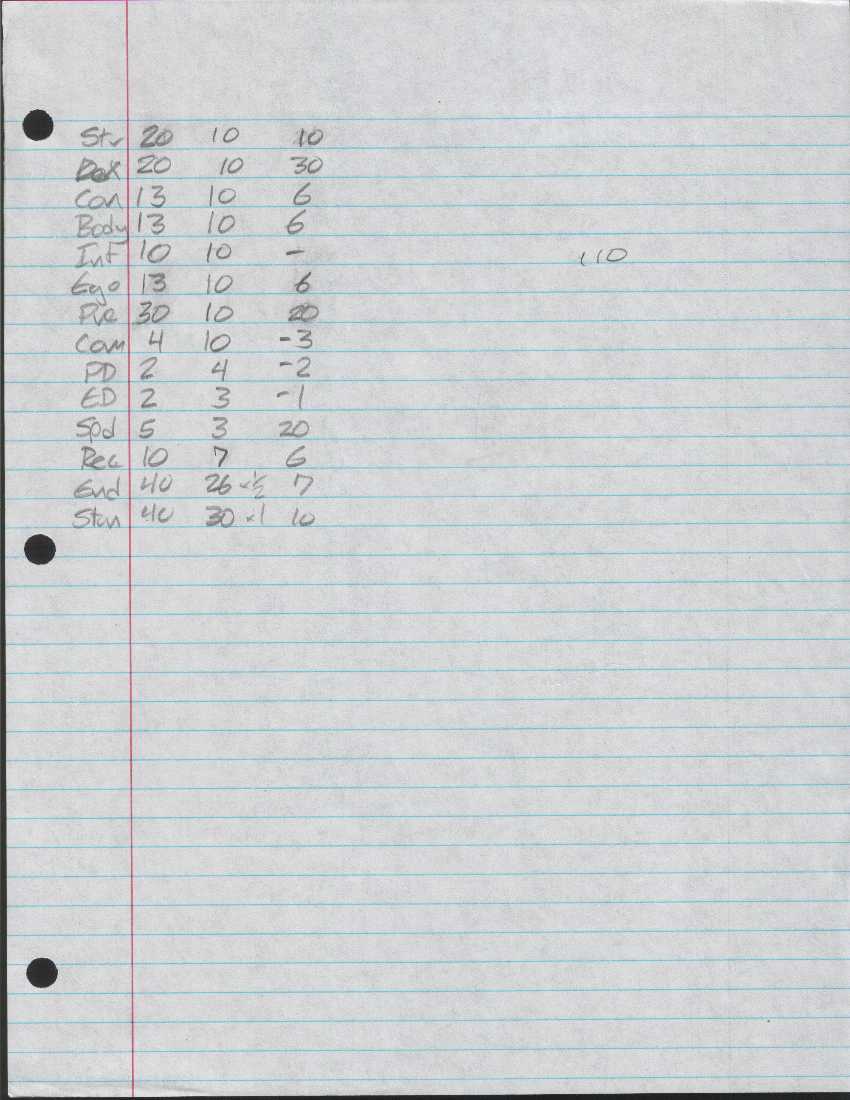 Str 20 10 10
Dex 20 10 30
Con 13 10 6
Body 13 10 6
Int 10 10 -
110
Ego 13 10 6
Pre 30 10 20
Com 4 10 -3
PD 2 4 -2
ED 2 3 -1
Spd 5 3 20
Rec 10 7 6
End 40 26 x 1/2 7
Stun 40 30 x 1 10